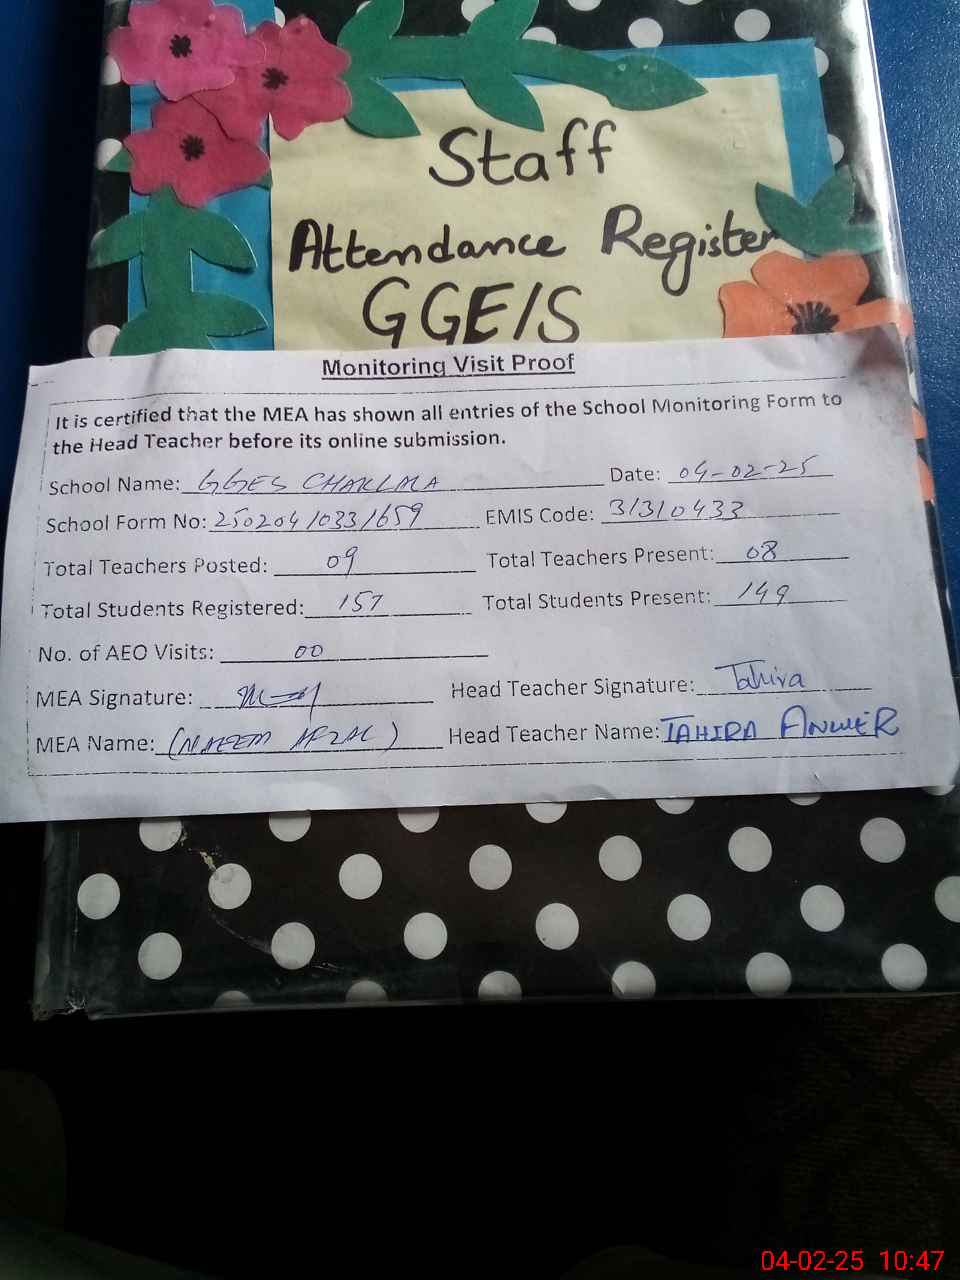 Staff
Attendance Register
GGE/S
Monitoring Visit Proof
It is certified that the MEA has shown all entries of the School Monitoring Form to
the Head Teacher before its online submission.
School Name: GGES CHAKLALA Date: 04-02-25
School Form No: 250204/033/659 EMIS Code: 31310433
Total Teachers Posted: 09 Total Teachers Present: 08
Total Students Registered: 157 Total Students Present: 149
No. of AEO Visits: 00
MEA Signature: Head Teacher Signature: Tahira
MEA Name: (NAEEM AFZAL) Head Teacher Name: TAHIRA ANWER
04-02-25 10:47